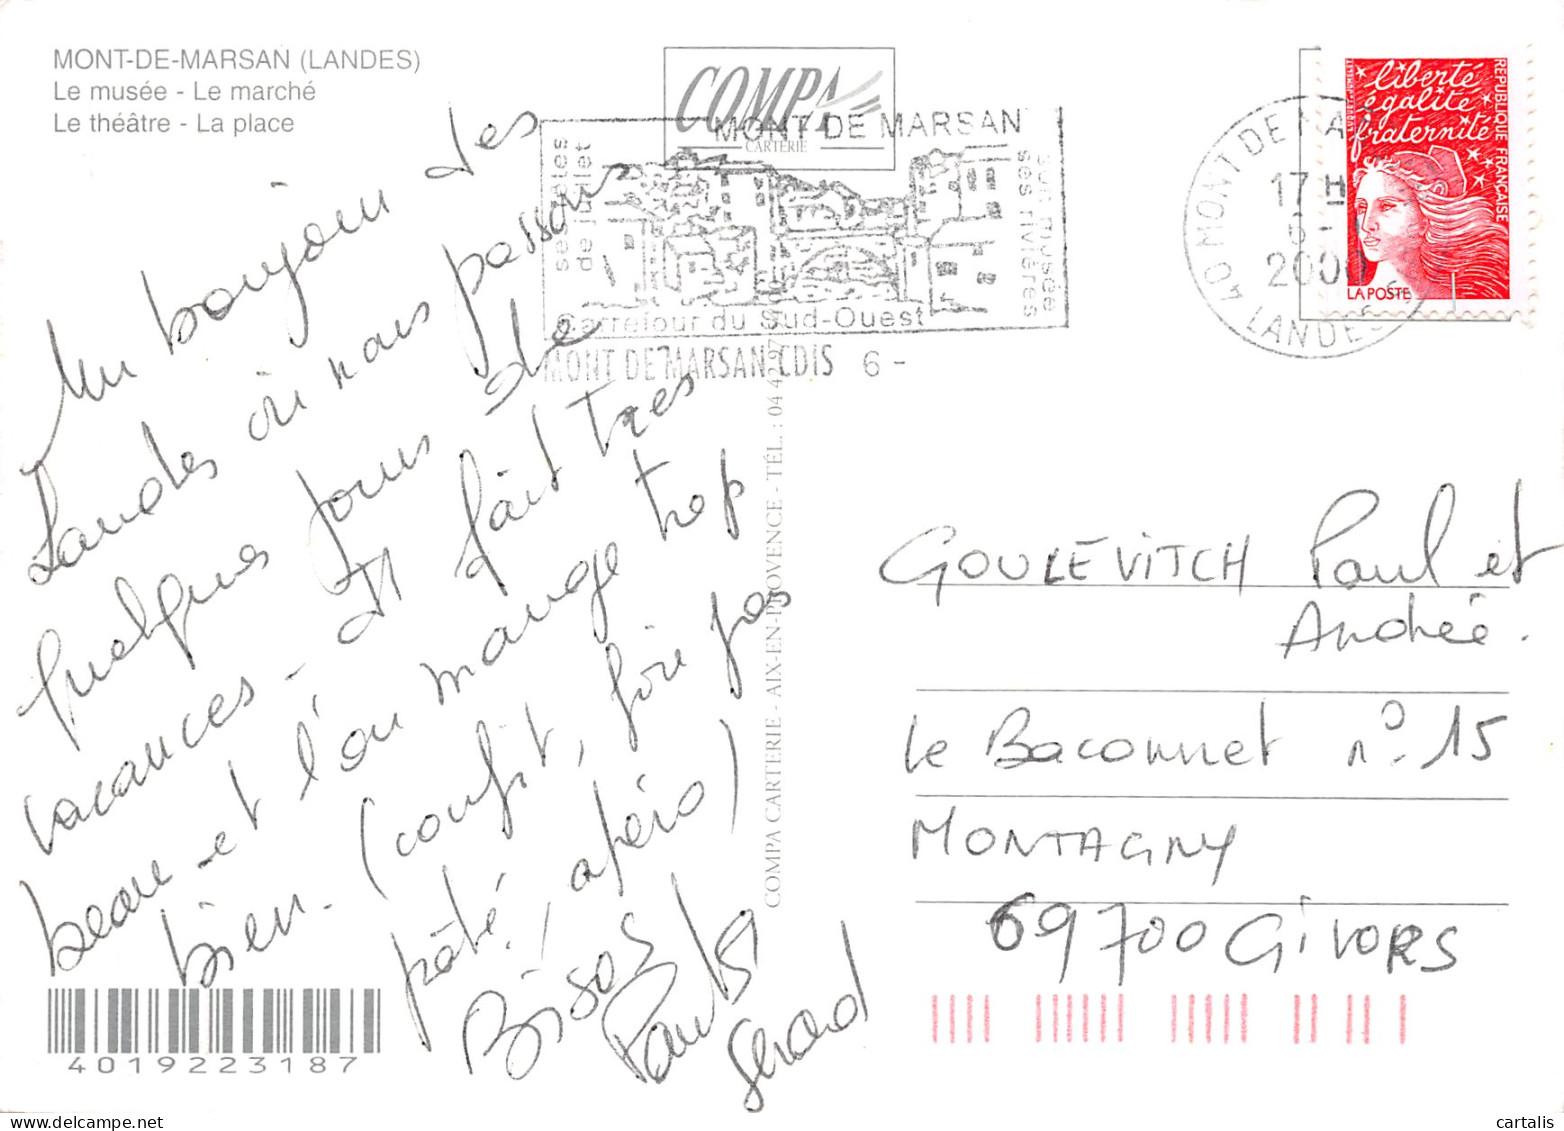 MONT-DE-MARSAN (LANDES)
Le musée - Le marché
Le théâtre - La place
COMPA
CARTERIE
MONT DE MARSAN
ses fêtes
de juillet
son musée
ses rivières
Carrefour du Sud-Ouest
MONT DE MARSAN CDIS 6 -
40 MONT DE MAR
17 H
6 -
2000
LANDES
liberté
égalité
fraternité
REPUBLIQUE FRANÇAISE
LA POSTE
Un bonjour des
Landes où nous passons
quelques jours de
vacances - Il fait très
beau et l'on mange trop
bien - (confit, foie gras
pâté, apéro)
Bisous
Gérard
COMPA CARTERIE - AIX-EN-PROVENCE - TÉL. : 04 42 97
GOULEVITCH Paul et
Andrée.
Le Baconnet n° 15
MONTAGNY
69700 GIVORS
4019223187
www.delcampe.net
cartalis